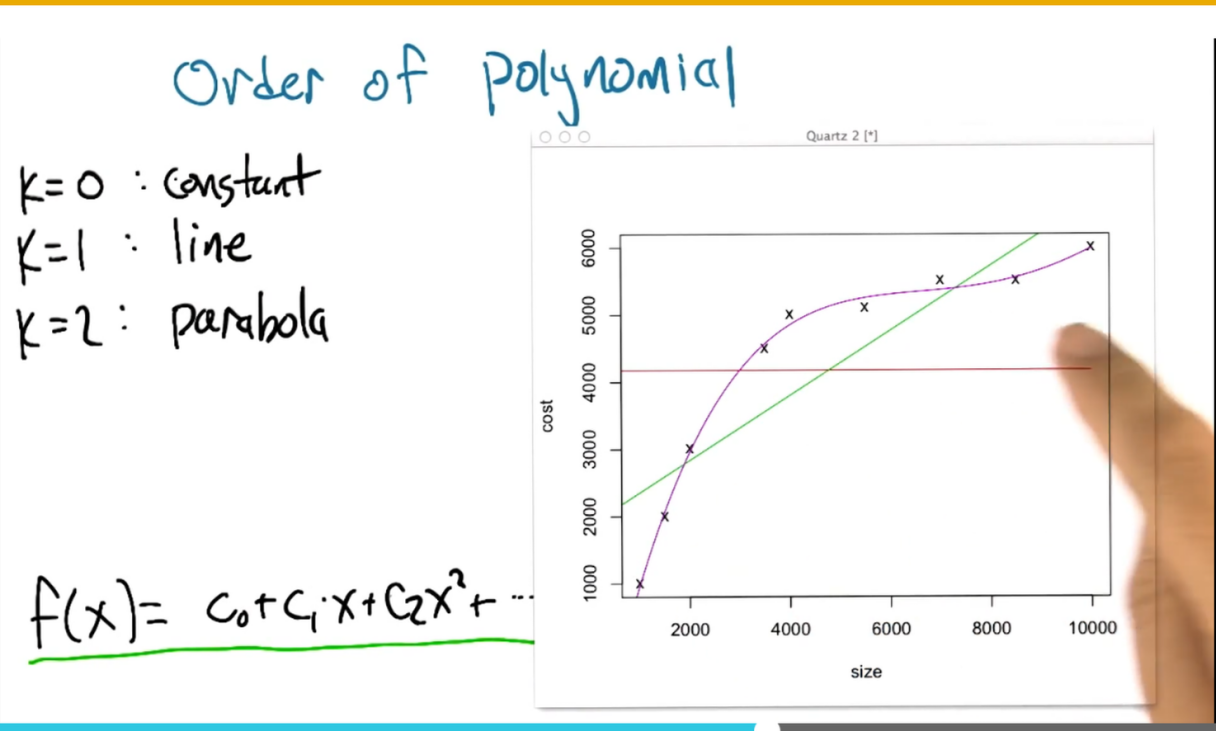 Order of polynomial
K=0 : constant
K=1 : line
K=2 : parabola
f(x)= C₀+C₁·X+C₂X²+ ...
Quartz 2 [*]
cost
6000
5000
4000
3000
2000
1000
2000 4000 6000 8000 10000
size